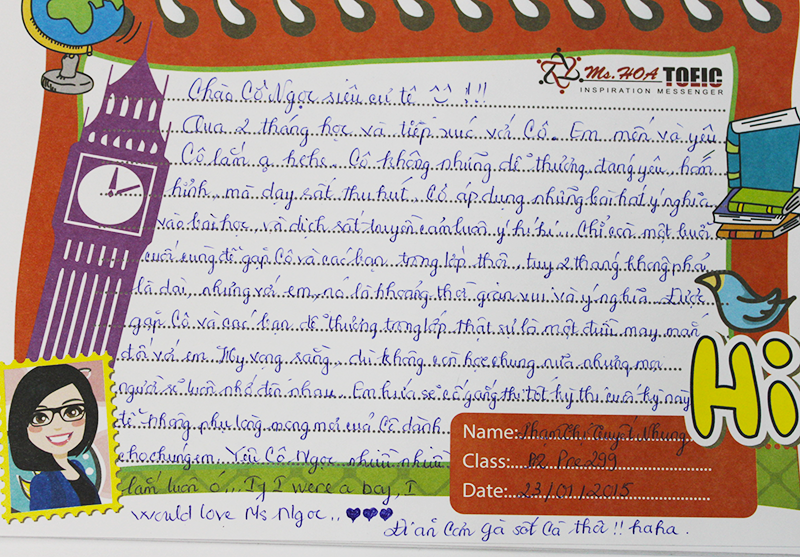 Ms. HOA TOEIC
INSPIRATION MESSENGER
Chào Cô Ngọc siêu cư tê !!!
Qua 2 tháng học và tiếp xúc với Cô. Em mến và yêu
Cô lắm ạ hehe. Cô không những dễ thương, đáng yêu, hóm
hỉnh, mà dạy rất thu hút. Cô áp dụng những bài hát ý nghĩa
vào bài học, và dịch rất truyền cảm luôn ý hi hi.. Chỉ còn một buổi
cuối cùng để gặp Cô và các bạn trong lớp thôi, tuy 2 tháng không phải
là dài, nhưng với em, nó là khoảng thời gian vui và ý nghĩa. Được
gặp Cô và các bạn dễ thương trong lớp thật sự là một điều may mắn
đối với em. Hy vọng rằng, dù không còn học chung nữa nhưng mọi
người sẽ luôn nhớ đến nhau. Em hứa sẽ cố gắng thi tốt kỳ thi cuối kỳ này
để không phụ lòng mong mỏi của Cô dành
cho chúng em. Yêu Cô Ngọc nhiều nhiều
lắm luôn ó... If I were a boy, I
would love Ms Ngoc.. ♥♥♥
Đi ăn Cơm gà sốt Cà thôi!! haha.
Name: Phạm Thị Tuyết Nhung
Class: B2 Pre 299
Date: 23/01/2015
Hi